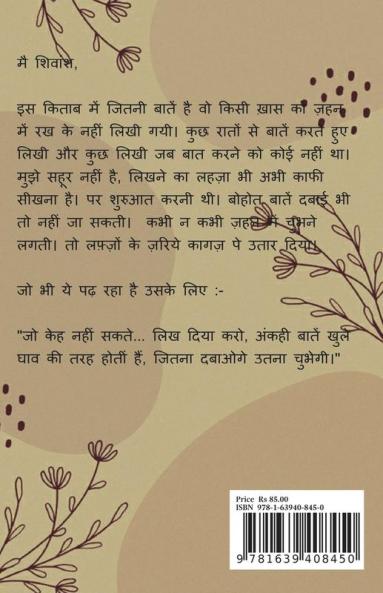 मै शिवांश,
इस किताब में जितनी बातें है वो किसी ख़ास को ज़हन
में रख के नहीं लिखी गयी। कुछ रातों से बातें करते हुए
लिखी और कुछ लिखी जब बात करने को कोई नहीं था।
मुझे सहूर नहीं है, लिखने का लहज़ा भी अभी काफी
सीखना है। पर शुरुआत करनी थी। बोहोत बातें दबाई भी
तो नहीं जा सकती। कभी न कभी ज़हन में चुभने
लगती। तो लफ़्ज़ों के ज़रिये कागज़ पे उतार दिया।
जो भी ये पढ़ रहा है उसके लिए :-
"जो केह नहीं सकते... लिख दिया करो, अंकही बातें खुले
घाव की तरह होतीं हैं, जितना दबाओगे उतना चुभेगी।"
Price Rs 85.00
ISBN 978-1-63940-845-0
9 781639 408450